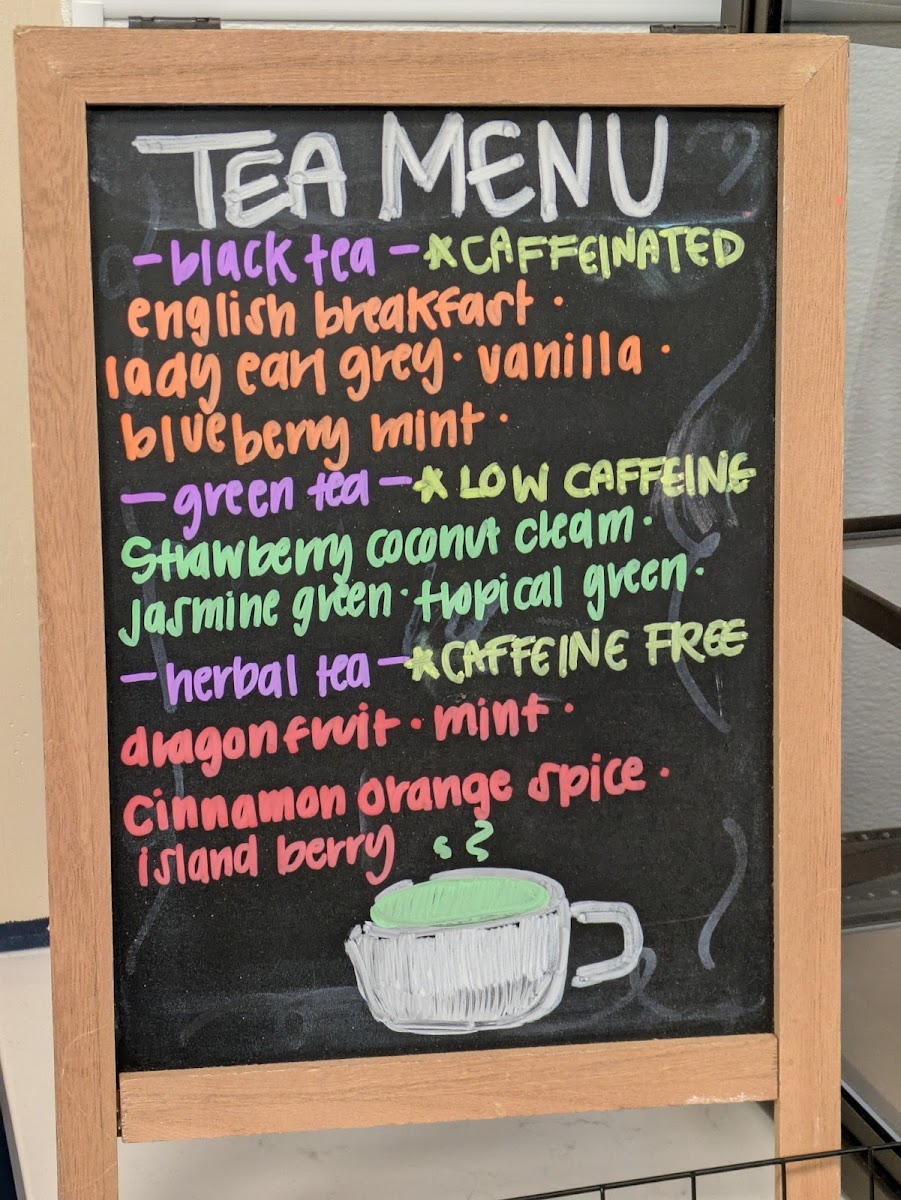 TEA MENU
-black tea-*CAFFEINATED
english breakfast ·
lady earl grey · vanilla ·
blueberry mint ·
-green tea-* LOW CAFFEINE
Strawberry coconut cleam ·
Jasmine green · tropical green ·
-herbal tea-*CAFFEINE FREE
dragonfruit · mint ·
Cinnamon Orange spice ·
island berry